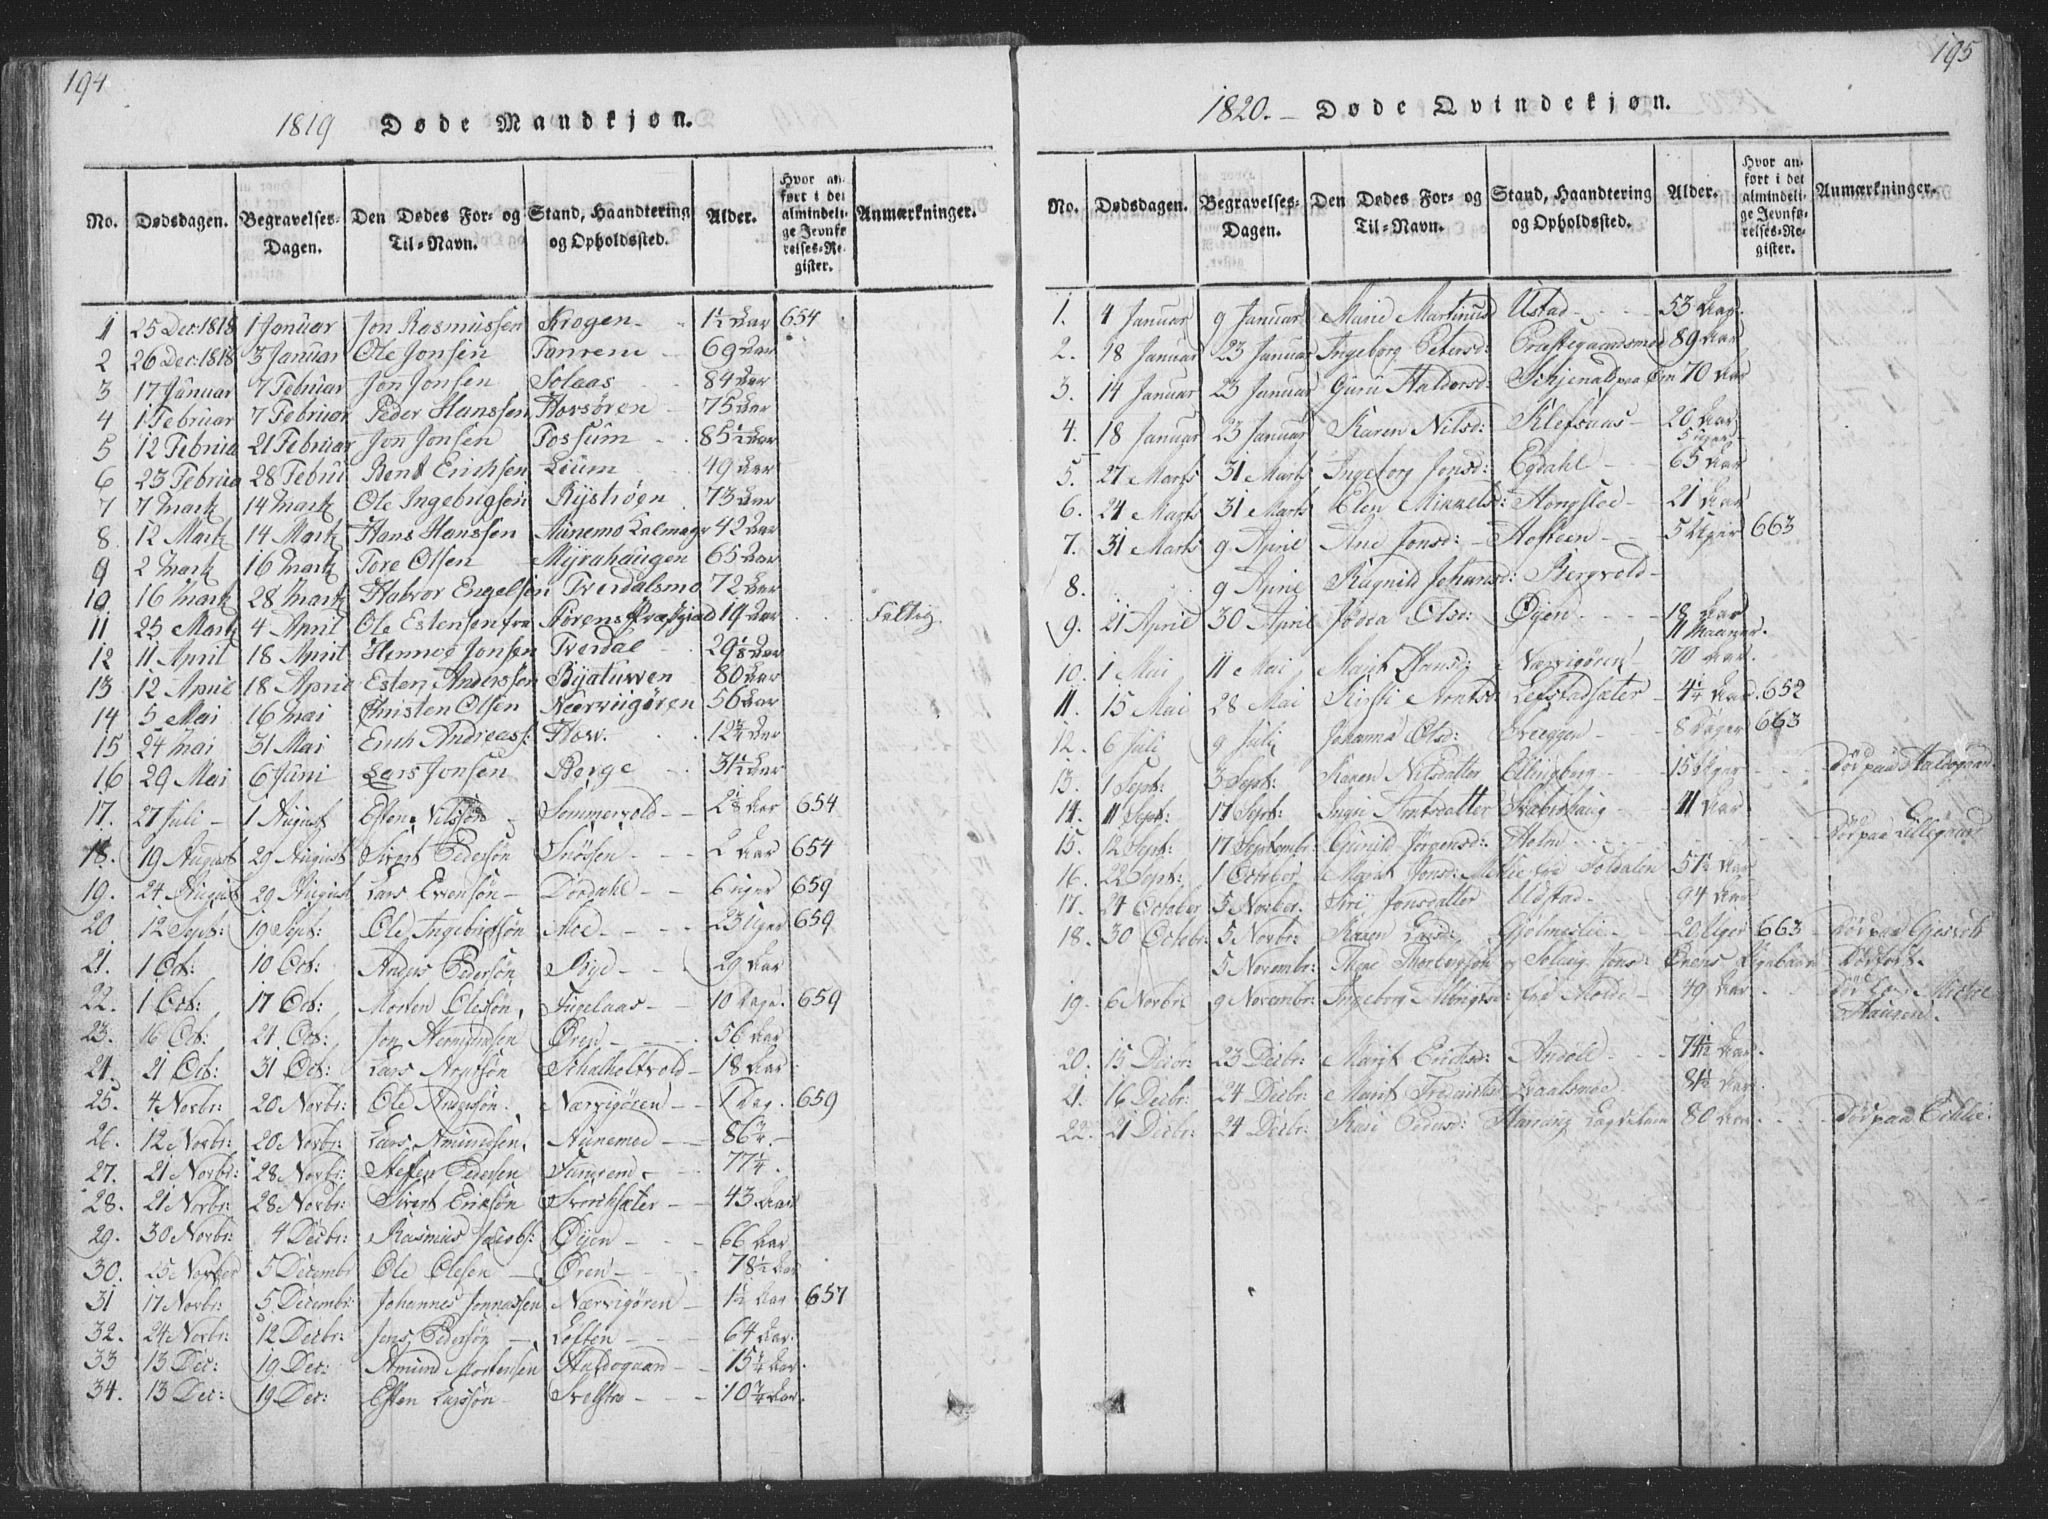 194
1819 Døde Mandkjøn.
No. Dødsdagen. Begravelses-Dagen. Den Dødes For- og Til-Navn. Stand, Haandtering og Opholdssted. Alder. Hvor anført i det almindelige Jevnførelses-Register. Anmærkninger.
1 25 Dec: 1818 1 Januar Jon Rasmussen Krogen 1½ Aar 654
2 26 Dec: 1818 3 Januar Ole Jonsen Tanrem 69 Aar
3 17 Januar 7 Februar Jon Jonsen Solaas 84 Aar
4 1 Februar 7 Februar Peder Hanssen Horsøren 75 Aar
5 12 Februa 21 Februar Jon Jonsen Fossum 85½ Aar
6 23 Februa 28 Februi Bent Erichsen Lium 49 Aar
7 7 Martz 14 Martz Ole Ingebrigsen Rystrøen 73 Aar
8. 12 Martz 14 Martz Hans Hanssen Aunemo 42 Aar
9 2 Martz 16 Martz Tore Olsen Myrahaugen 65 Aar
10 16 Martz 28 Martz Halvor Engelsen Tverdalsmo 72 Aar
11 25 Martz 4 April Ole Estensen fra 19 Aar Fattig
12 11 April 18 April Jonsen Tverdal 29 Aar
13 12 April 18 April Esten Anderssen 80 Aar
14 5 Mai 16 Mai Christen Olsen Nærviigøren 56 Aar
15 24 Mai 31 Mai Erich Andreass: How. 12¾ Aar
16 29 Mai 6 Juni Lars Jonsen Berge 31½ Aar
17. 27 Juli 1 August Esten Nilssøn Sommervold 2 Aar 654
18. 19 August 29 August Sivert Pedersøn Snøsen 2 Aar 654
19. 24 August 29 August Lars Evensøn Dørdahl 6 Uger 659
20 12 Sept: 19 Sept: Ole Ingebrigtsøn Moe 23 Uger 659
21. 1 Oct: 10 Oct: Anders Pedersøn Rye 29 Aar
22. 1 Oct: 17 Oct: Morten Olessøn, 10 Dage 659
23. 16 Oct: 24 Oct: Jon Øren 56 Aar
24. 21 Oct: 31 Oct: Lars 18 Aar
25. 4 Novbr: 20 Novbr: Ole Anderssøn. Nærvigøren 1 Dag. 659
26. 12 Novbr: 20 Novbr: Lars Amundsen, Aunemoe 86¼
27. 21 Novbr: 28 Novbr: Steffen Pedersen Tanrem 77¼.
28. 21 Novbr: 28 Novbr: Sivert Eriksøn Svorksæter 43 Aar
29. 30 Novbr: 4 Decbr: Rasmus Jacobs: Øyen 66 Aar
30. 25 Novber 5 Decembr Ole Olesen Øren 78½ Aar
31 17 Novbr: 5 Decembr: Johannes Jonnassen Nærvigøren 1½ Aar 657
32. 24 Novbr: 12 Decbr: Jens Pedersøn Løften 64 Aar.
33 13 Dec: 19 Dec: Amund Mortensen Haldogaard 15¼ Aar
34. 13 Dec: 19 Dec: Esten Larssøn 10¾ Aar
195
1820. Døde Qvindekjøn.
No. Dødsdagen. Begravelses-Dagen. Den Dødes For- og Til-Navn. Stand, Haandtering og Opholdssted. Alder. Hvor anført i det almindelige Jevnførelses-Register. Anmærkninger.
1. 4 Januar 9 Januar Marie Martinusd Ustad 53 Aar
2. 18 Januar 23 Januar Ingeborg Petersd: Præstegaardsmoe 89 Aar
3. 14 Januar 23 Januar Guru Haldorsd: 70 Aar
4. 18 Januar 23 Januar Karen Nilsd: Klefsaas 20 Aar 5 Uger
5. 27 Marts 31 Marts Ingeborg Jonsd: Egdahl 65 Aar
6. 24 Marts 31 Marts Elen Mikkelsd: Hongsloe 21 Aar
7. 31 Marts 9 April Ane Jonsd: Hofteen 5 Uger 663
8. 9 April Ragnild Johansd: Bergvold
9. 21 April 30 April Olsd: Øyen 18 Aar 11 Maaner.
10. 1 Mai 11 Mai Marit Hansd: Nærvigøren 70 Aar
11. 15 Mai 28 Mai Kirsti Arntsd: Lefstadsæter 4¼ Aar 652
12. 6 Juli 9 Juli Johanna Olsd: Sveggen 8 Dager 663
13. 1 Sept: 3 Sept: Karen Nilsdatter Ellingberg 15 Uger Død paa Haldogaard
14. 11 Sept: 17 Sept: Ingri Arntsdatter 41 Aar
15. 12 Sept: 17 Septembr: Gunild Jørgensd: Holm Død paa Lillegaard
16. 22 Sept: 1 October Marit Jonsd: Melie fra Soldalen 57½ Aar
17. 24 October 5 Novber. Siri Jonsdatter Udstad 94 Aar
18. 30 Octobr: 5 Novbr: Karen Larsd: Gjølmeslie 20 Uger 663
5 Novembr: Thore Thorbergsøn og Solvig Jonsd Ørens Pigebarn Dødfødt.
19. 6 Novbr: 9 Novembr: Ingeborg fra Molde 49 Aar
20. 15 Decbr: 23 Decbr: Marit Erichsd: 74½ Aar
21. 16 Decbr: 24 Decbr: Marit 81½ Aar
22. 21 Decbr: 24 Decbr: Kari Pedersd: 80 Aar Død paa Eklie: